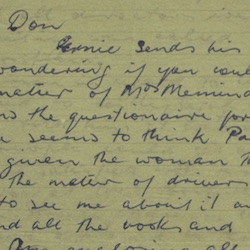 Don
Ernie sends his
wondering if you coul
matter of Mrs
ns the questionaire for
e seems to think Pa
given the woman t
the matter of driver
to see me about it a
nd all the books and